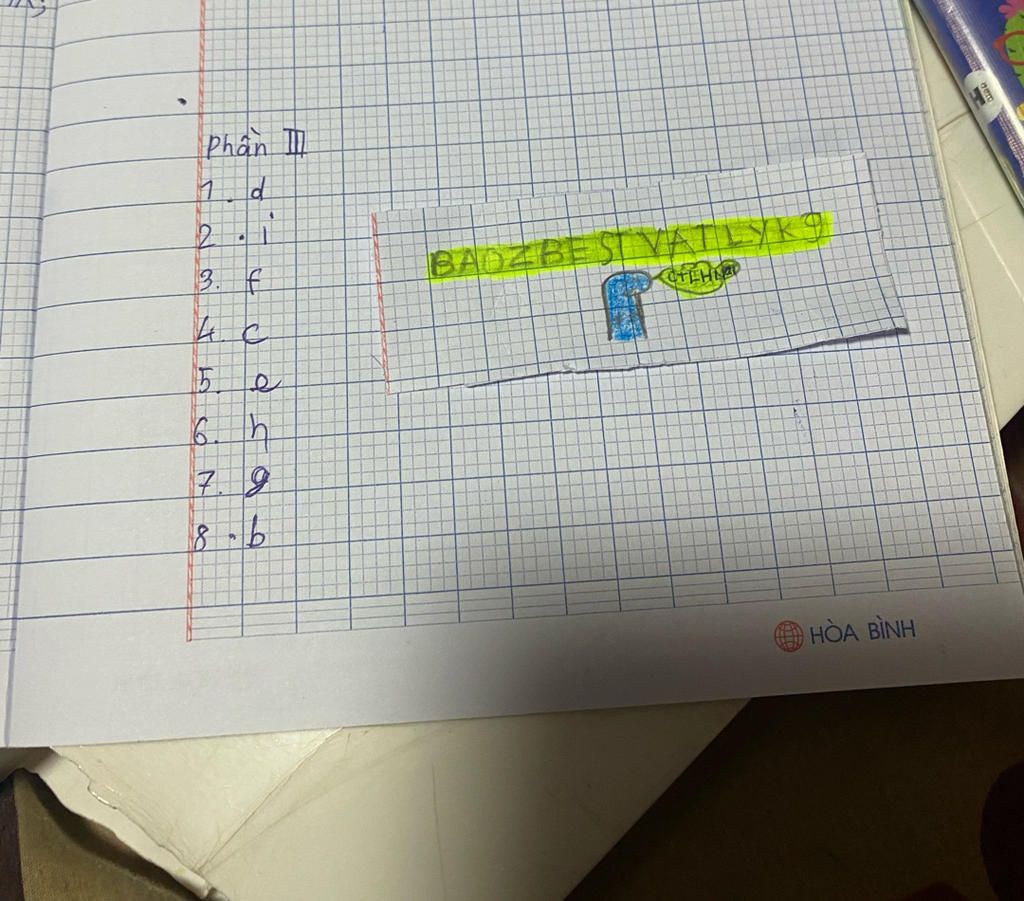 Phần III
1. d
2. i
3. f
4. c
5. e
6. h
7. g
8. b
BAOZBESTVATLYK9
HÒA BÌNH